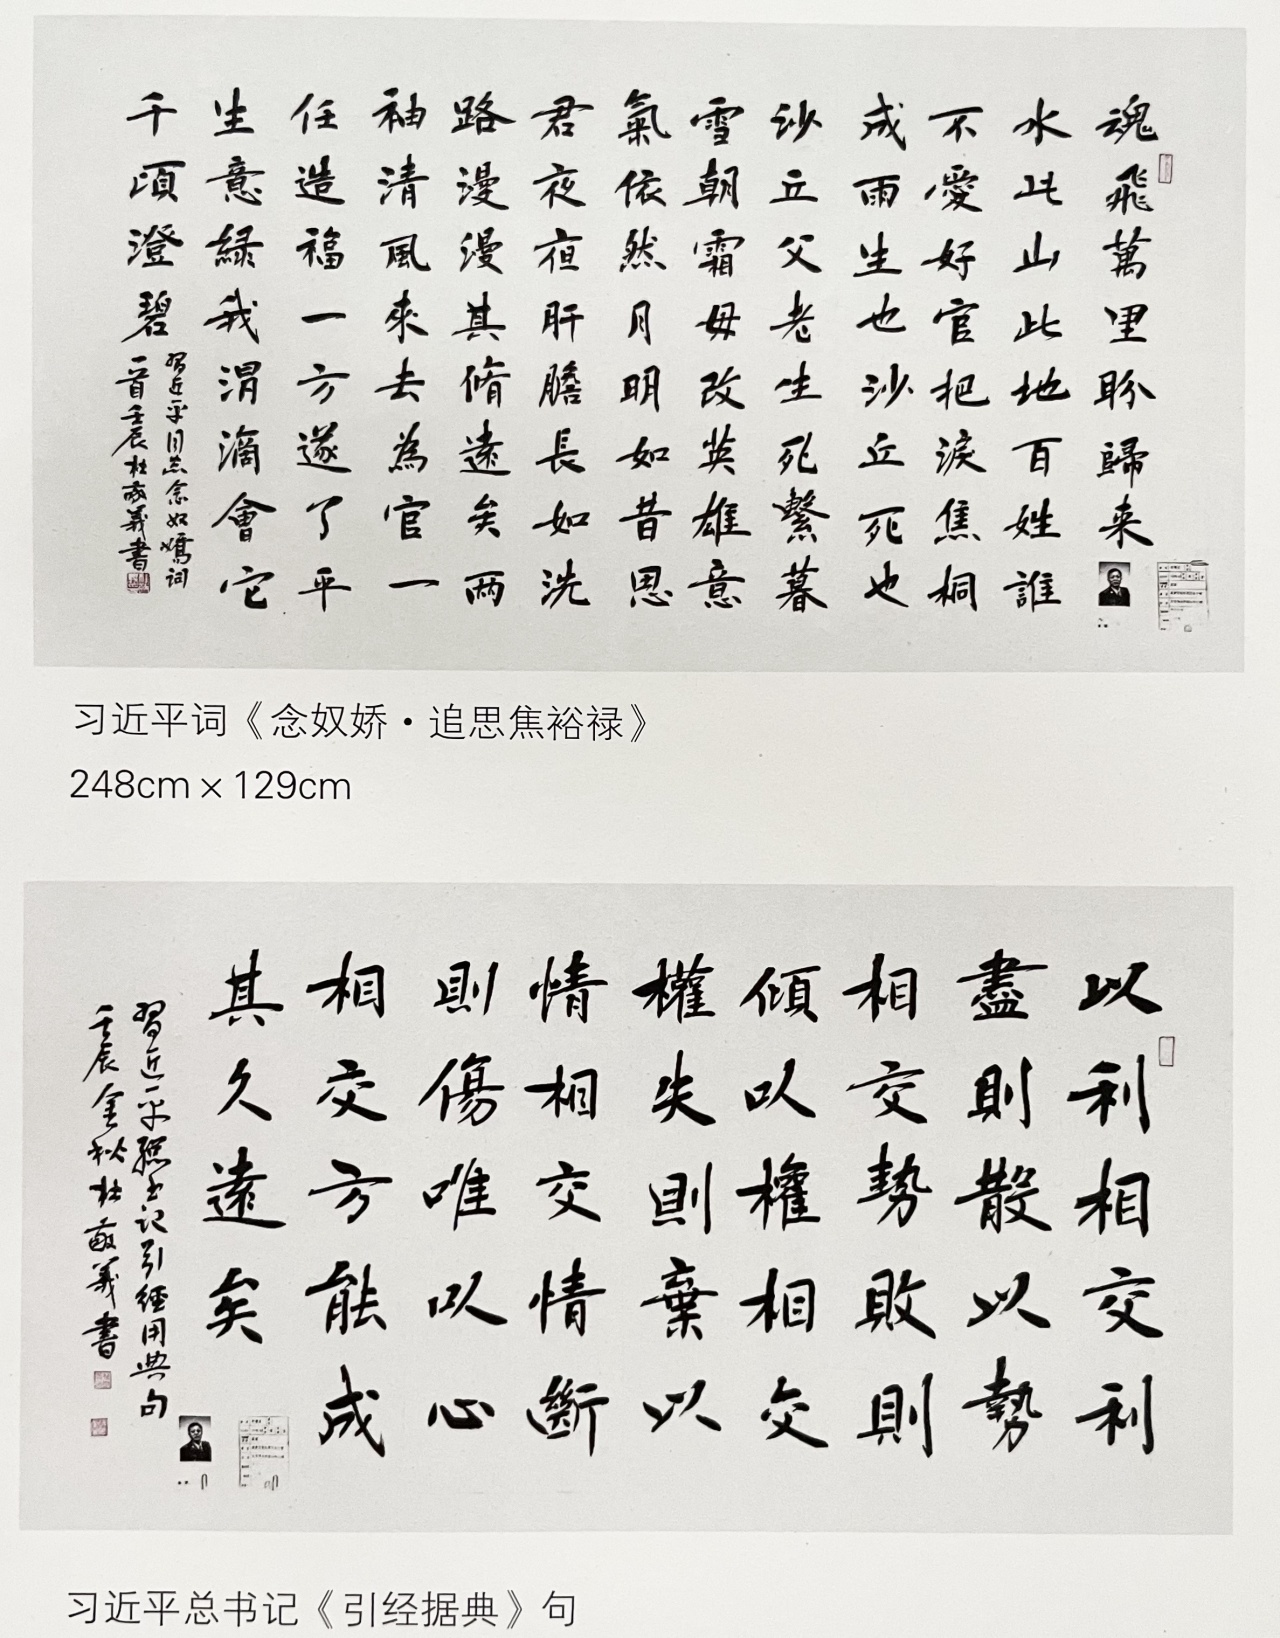 魂飛萬里盼歸来
水此山此地百姓誰
不愛好官把淚焦桐
成雨生也沙丘死也
沙丘父老生死繫暮
雪朝霜毋改英雄意
氣依然月明如昔思
君夜夜肝膽長如洗
路漫漫其脩遠矣两
袖清風來去為官一
任造福一方遂了平
生意綠我涓滴會它
千頃澄碧
習近平同志念奴嬌词
一首壬辰杜敬義書
习近平词《念奴娇·追思焦裕禄》
248cm×129cm
以利相交利
盡則散以勢
相交勢敗則
傾以權相交
權失則棄以
情相交情斷
則傷唯以心
相交方能成
其久遠矣
習近平總书记引經用典句
壬辰金秋杜敬義書
习近平总书记《引经据典》句